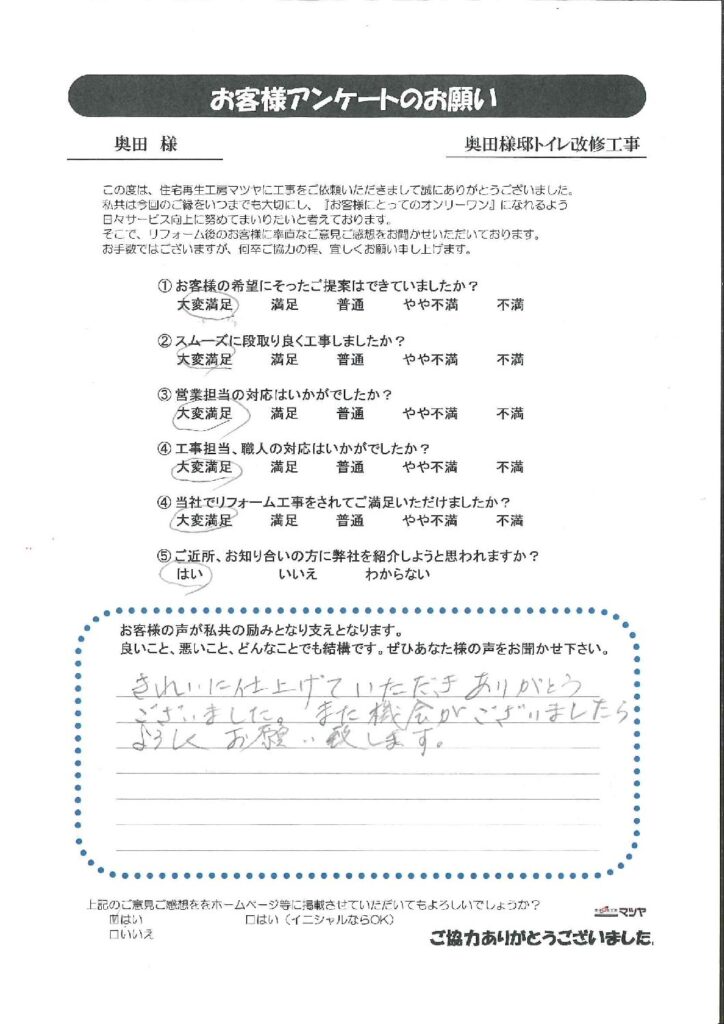 お客様アンケートのお願い
奥田 様
奥田様邸トイレ改修工事
この度は、住宅再生工房マツヤに工事をご依頼いただきまして誠にありがとうございました。
私共は今回のご縁をいつまでも大切にし、『お客様にとってのオンリーワン』になれるよう
日々サービス向上に努めてまいりたいと考えております。
そこで、リフォーム後のお客様に率直なご意見ご感想をお聞かせいただいております。
お手数ではございますが、何卒ご協力の程、宜しくお願い申し上げます。
① お客様の希望にそったご提案はできていましたか？
大変満足 満足 普通 やや不満 不満
② スムーズに段取り良く工事しましたか？
大変満足 満足 普通 やや不満 不満
③ 営業担当の対応はいかがでしたか？
大変満足 満足 普通 やや不満 不満
④ 工事担当、職人の対応はいかがでしたか？
大変満足 満足 普通 やや不満 不満
④ 当社でリフォーム工事をされてご満足いただけましたか？
大変満足 満足 普通 やや不満 不満
⑤ ご近所、お知り合いの方に弊社を紹介しようと思われますか？
はい いいえ わからない
お客様の声が私共の励みとなり支えとなります。
良いこと、悪いこと、どんなことでも結構です。ぜひあなた様の声をお聞かせ下さい。
きれいに仕上げていただきありがとう
ございました。また機会がございましたら
よろしくお願い致します。
上記のご意見ご感想ををホームページ等に掲載させていただいてもよろしいでしょうか？
☑はい □はい（イニシャルならOK）
□いいえ
マツヤ
ご協力ありがとうございました。